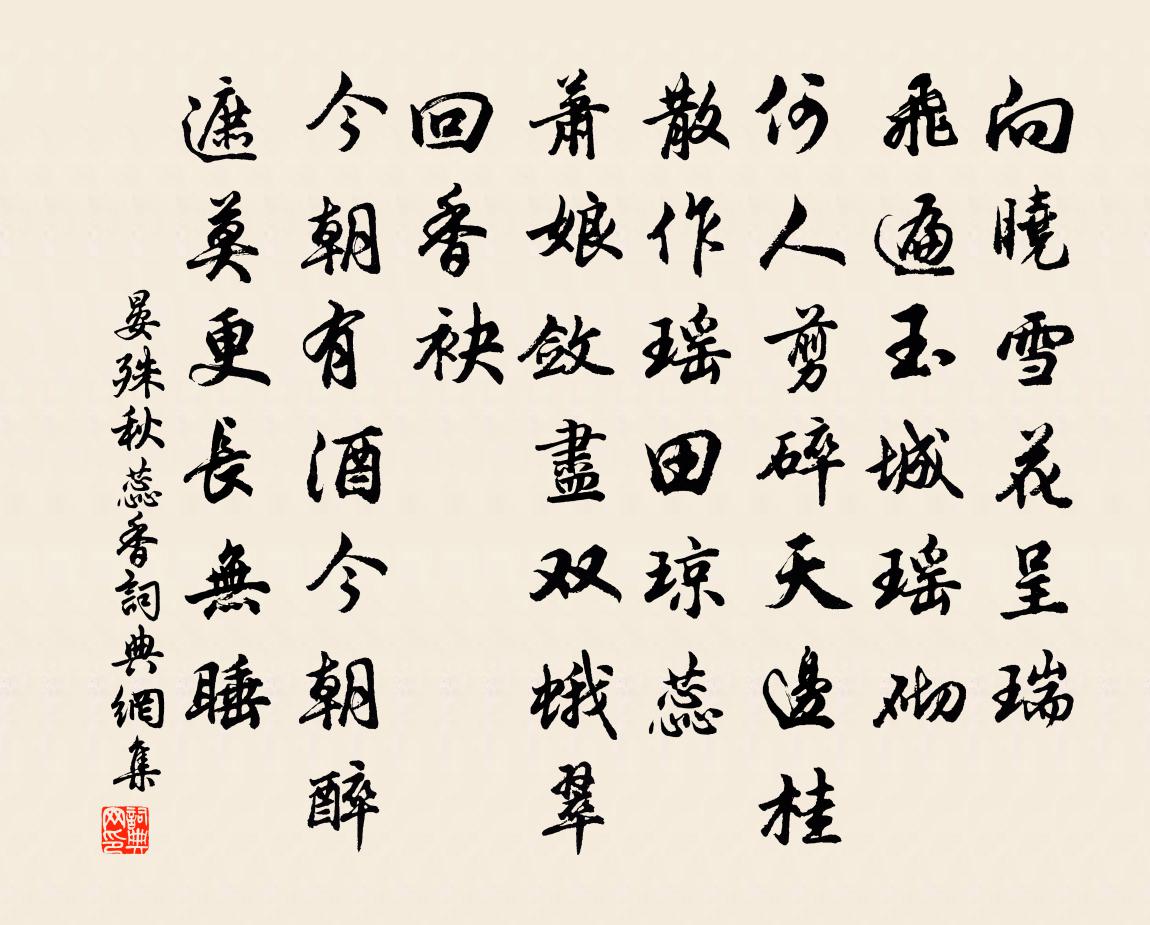 向曉雪花呈瑞
飛遍玉城瑶砌
何人剪碎天邊桂
散作瑶田琼蕊
蕭娘斂盡双蛾翠
回香袂
今朝有酒今朝醉
遮莫更長無睡
晏殊秋蕊香詞典網集
詞典网印